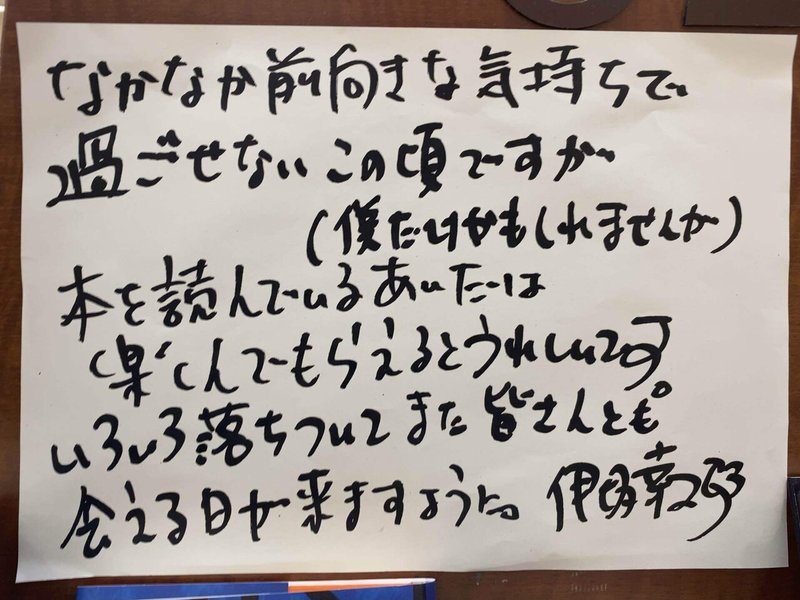 なかなか前向きな気持ちで
過ごせないこの頃ですが
(僕だけかもしれませんが)
本を読んでいるあいだは
楽しんでもらえるとうれしいです
いろいろ落ちついてまた皆さんとも
会える日が来ますように。 伊坂幸太郎